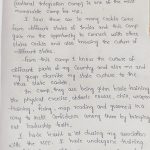 (cultural Integration Camp) is one of the most
memorable camp for me.
I said there are so many Cadets came
from different states of India and this Camp
gave me the opportunity to connect with other
states Cadets and also knowing the culture of
different states.
From this camp I know the culture of
different parts of my Country and also me and
my group describe my state culture to the
other state cadets.
In Camp they are being given train training
the physical exercise obstacle course, drill, weapon
training, map reading and so on
way to build Confidence among them by bringing
out leadership traits.
I have learnt a lot during my association
with the NCC. I have undergone training